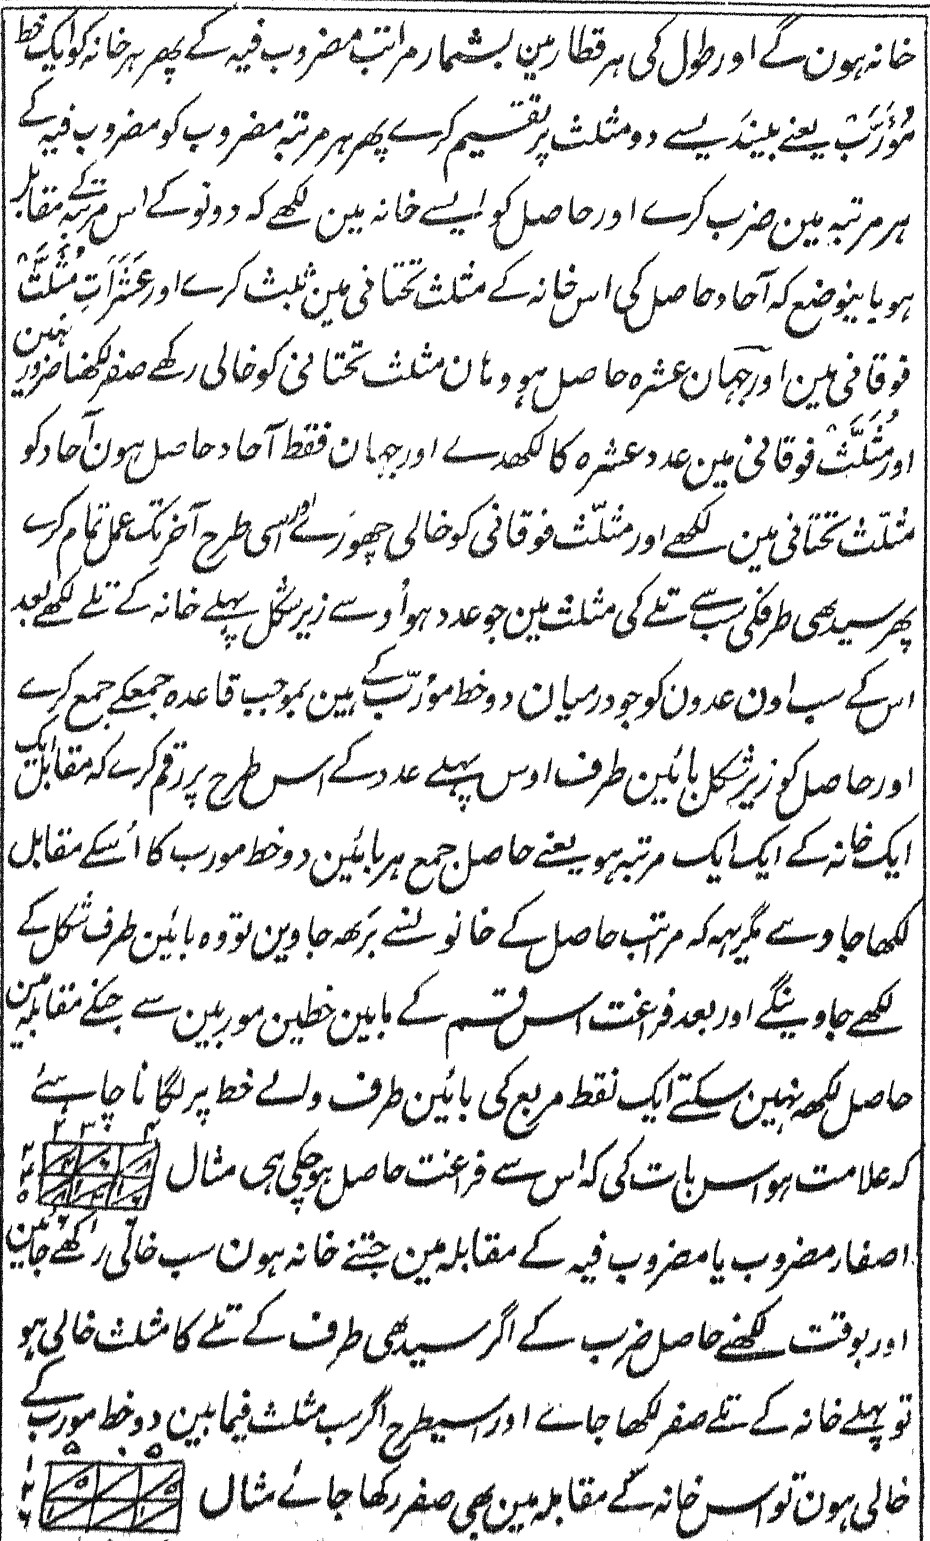 خانہ ہون گے اور طول کی ہر قطار مین بشمار مراتب مضروب فیہ کے پھر ہر خانہ کو ایک خط
مُؤَرَّبْ یعنے بیندَیسے دو مثلث پر تقسیم کرے پھر ہر مرتبہ مضروب کو مضروب فیہ کے
ہر مرتبہ مین ضرب کرے اور حاصل کو ایسے خانہ مین لکھے کہ دونو کے اس مرتبہ کے مقابل
ہو باینوضع کہ آحاد حاصل کی اس خانہ کے مثلث تحتانی مین ثبت کرے اور عَشَرَاتِ مُثَلَّثْ
فوقانی مین اور جہان عشرہ حاصل ہو وہان مثلث تحتانی کو خالی رکھے صفر لکھنا ضرور نہین
اور مُثَلَّثْ فوقانی مین عدد عشرہ کا لکھدے اور جہان فقط آحاد حاصل ہون آحاد کو
مُثلّث تحتانی مین لکھے اور مثلّث فوقانی کو خالی چھوڑے اور اسی طرح آخر تک عمل تمام کرے
پھر سیدھی طرفکی سب سے تلے کی مثلث مین جو عدد ہو اُوسے زیر شکل پہلے خانہ کے تلے لکھے بعد
اس کے سب اون عددون کو جو درمیان دو خط مؤرّب کے ہین بموجب قاعدہ جمعکے جمع کرے
اور حاصل کو زیر شکل بائین طرف اوس پہلے عدد کے اس طرح پر رقم کرے کہ مقابل ایک
ایک خانہ کے ایک ایک مرتبہ ہو یعنے حاصل جمع ہر بائین دو خط مورب کا اُسکے مقابل
لکھا جاوے مگر یہہ کہ مراتب حاصل کے خانونسے بڑھہ جاوین تو وہ بائین طرف شکل کے
لکھے جاوینگے اور بعد فراغت اس قسم کے مابین خطین موربین سے جنکے مقابلہ مین
حاصل لکھہ نہین سکتے ایک نقط مربع کی بائین طرف والے خط پر لگانا چاہئے
کہ علامت ہو اس بات کی کہ اس سے فراغت حاصل ہوچکی ہی مثال
اصفار مضروب یا مضروب فیہ کے مقابلہ مین جتنے خانہ ہون سب خالی رکھے جائین
اور بوقت لکھنے حاصل ضرب کے اگر سیدھی طرف کے تلے کا مثلث خالی ہو
تو پہلے خانہ کے تلے صفر لکھا جائے اور اسیطرح اگر سب مثلث فیمابین دو خط مورب کے
خالی ہون تو اس خانہ کے مقابلہ مین بھی صفر رکھا جائے مثال